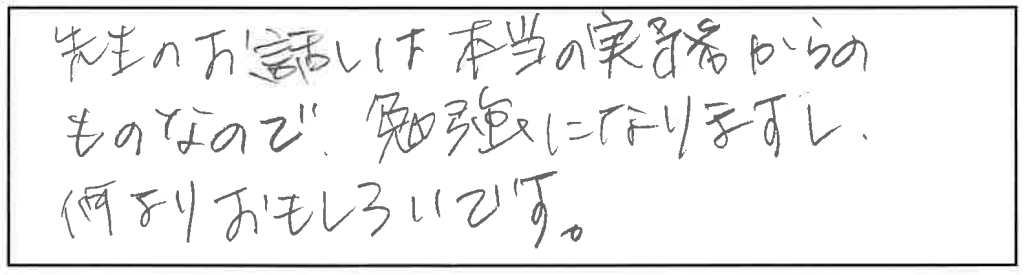 先生のお話しは本当の実務からの
ものなので、勉強になりますし、
何よりおもしろいです。